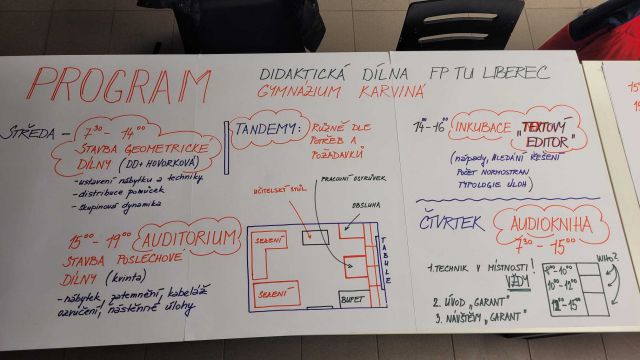 PROGRAM
DIDAKTICKÁ DÍLNA FP TU LIBEREC
GYMNÁZIUM KARVINÁ
STŘEDA - 7³⁰ - 14⁰⁰
STAVBA GEOMETRICKÉ
DÍLNY (DD + HOVORKOVÁ)
- ustavení nábytku a techniky
- distribuce pomůcek
- skupinová dynamika
15⁰⁰ - 19⁰⁰ AUDITORIUM
STAVBA POSLECHOVÉ
DÍLNY (kvinta)
- nábytek, zatemnění, kabeláž
ozvučení, nástěnné úlohy
TANDEMY: RŮZNĚ DLE
POTŘEB A
POŽADAVKŮ
UČITELSKÝ STŮL
PRACOVNÍ OSTRŮVEK
OBSLUHA
SEZENÍ
TABULE
SEZENÍ
BUFET
14⁰⁰-16⁰⁰ INKUBACE „TEXTOVÝ
EDITOR"
(nápady, HLEDÁNÍ ŘEŠENÍ
POČET NORMOSTRAN
TYPOLOGIE ÚLOH)
ČTVRTEK AUDIOKNIHA
7³⁰ - 15⁰⁰
1. TECHNIK V MÍSTNOSTI!
VŽDY
2. ÚVOD „GARANT"
3. NÁVŠTĚVY „GARANT"
WHO?
8⁰⁰-10⁰⁰
10⁰⁰-12⁰⁰